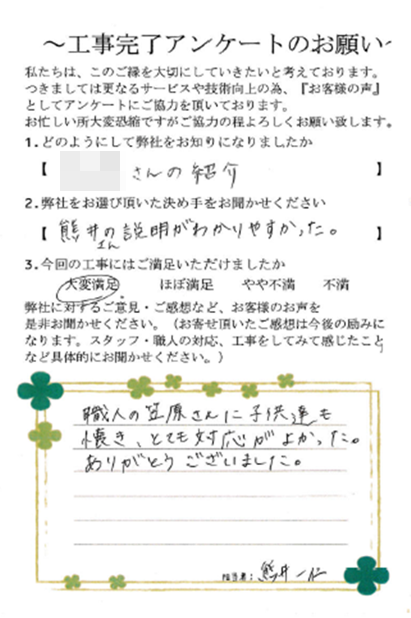 ～工事完了アンケートのお願い～
私たちは、このご縁を大切にしていきたいと考えております。
つきましては更なるサービスや技術向上の為、『お客様の声』
としてアンケートにご協力を頂いております。
お忙しい所大変恐縮ですがご協力の程よろしくお願い致します。
1.どのようにして弊社をお知りになりましたか
【 さんの紹介 】
2.弊社をお選び頂いた決め手をお聞かせください
【 熊井さんの説明がわかりやすかった。 】
3.今回の工事にはご満足いただけましたか
大変満足 ほぼ満足 やや不満 不満
弊社に対するご意見・ご感想など、お客様のお声を
是非お聞かせください。（お寄せ頂いたご感想は今後の励みに
なります。スタッフ・職人の対応、工事をしてみて感じたこと
など具体的にお聞かせください。）
職人の笠原さんに子供達も
懐き、とても対応がよかった。
ありがとうございました。
担当者: 熊井